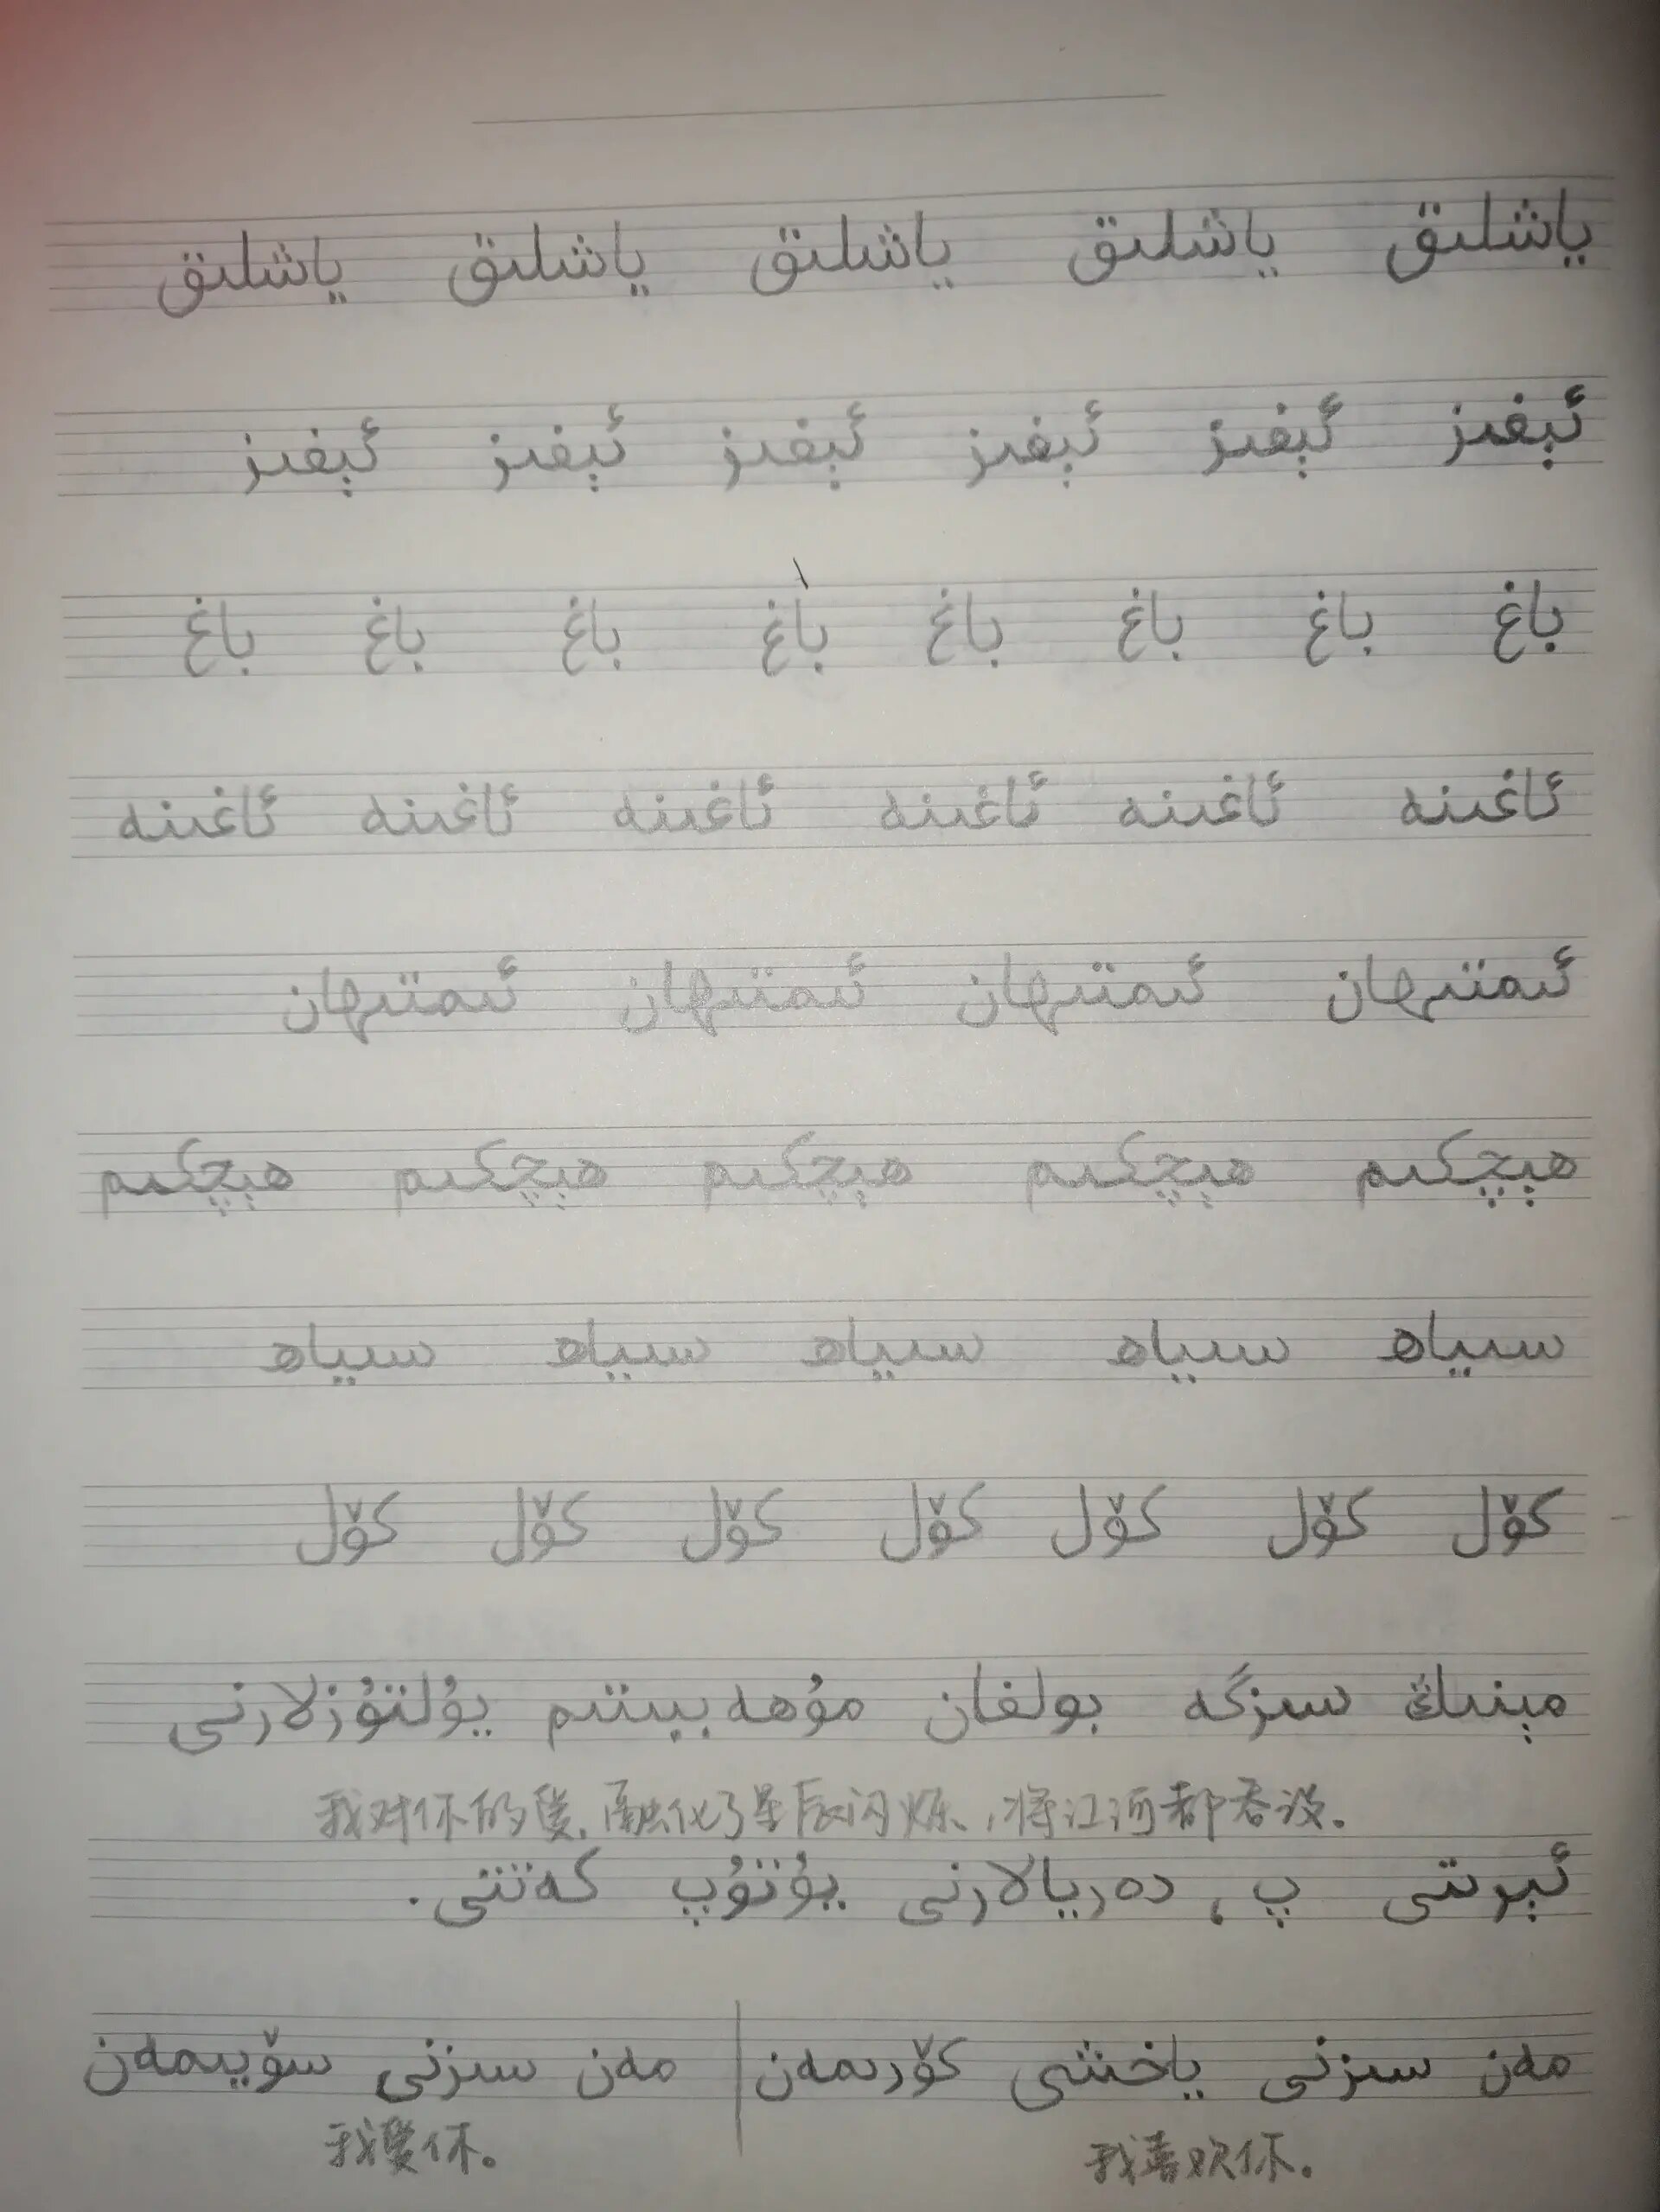 ياشلىق ياشلىق ياشلىق ياشلىق ياشلىق
ئېغىز ئېغىز ئېغىز ئېغىز ئېغىز ئېغىز
باغ باغ باغ باغ باغ باغ باغ باغ
ئاغىنە ئاغىنە ئاغىنە ئاغىنە ئاغىنە ئاغىنە
ئىمتىھان ئىمتىھان ئىمتىھان ئىمتىھان
ھېچكىم ھېچكىم ھېچكىم ھېچكىم ھېچكىم
سىياھ سىياھ سىياھ سىياھ سىياھ
كۆل كۆل كۆل كۆل كۆل كۆل كۆل
مېنىڭ سىزگە بولغان مۇھەببىتىم يۇلتۇزلارنى
我对你的爱,融化了星辰闪烁,将江河都吞没。
ئېرىتى پ، دەريالارنى يۇتۇپ كەتتى.
مەن سىزنى ياخشى كۆرىمەن | مەن سىزنى سۆيىمەن
我喜欢你。 我爱你。